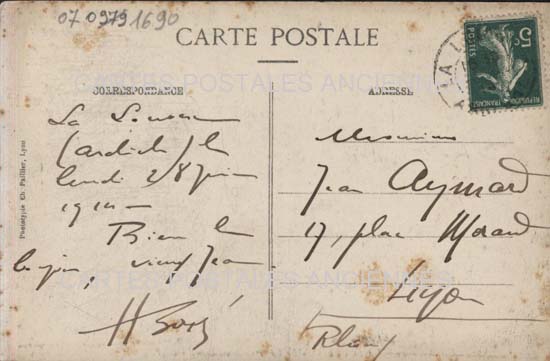 07 0979 1690
CARTE POSTALE
CORRESPONDANCE
ADRESSE
CARTES POSTALES ANCIENNES
La
(Ardèche) le
lundi 28 juin
Bien le
vieux Jean
Monsieur
Jean Aymard
17, place Morand
Lyon
Rhône
Phototypie Ch. Paillier, Lyon
5c
POSTES
REPUBLIQUE FRANÇAISE
LA L
CARTES POSTALES ANCIENNES